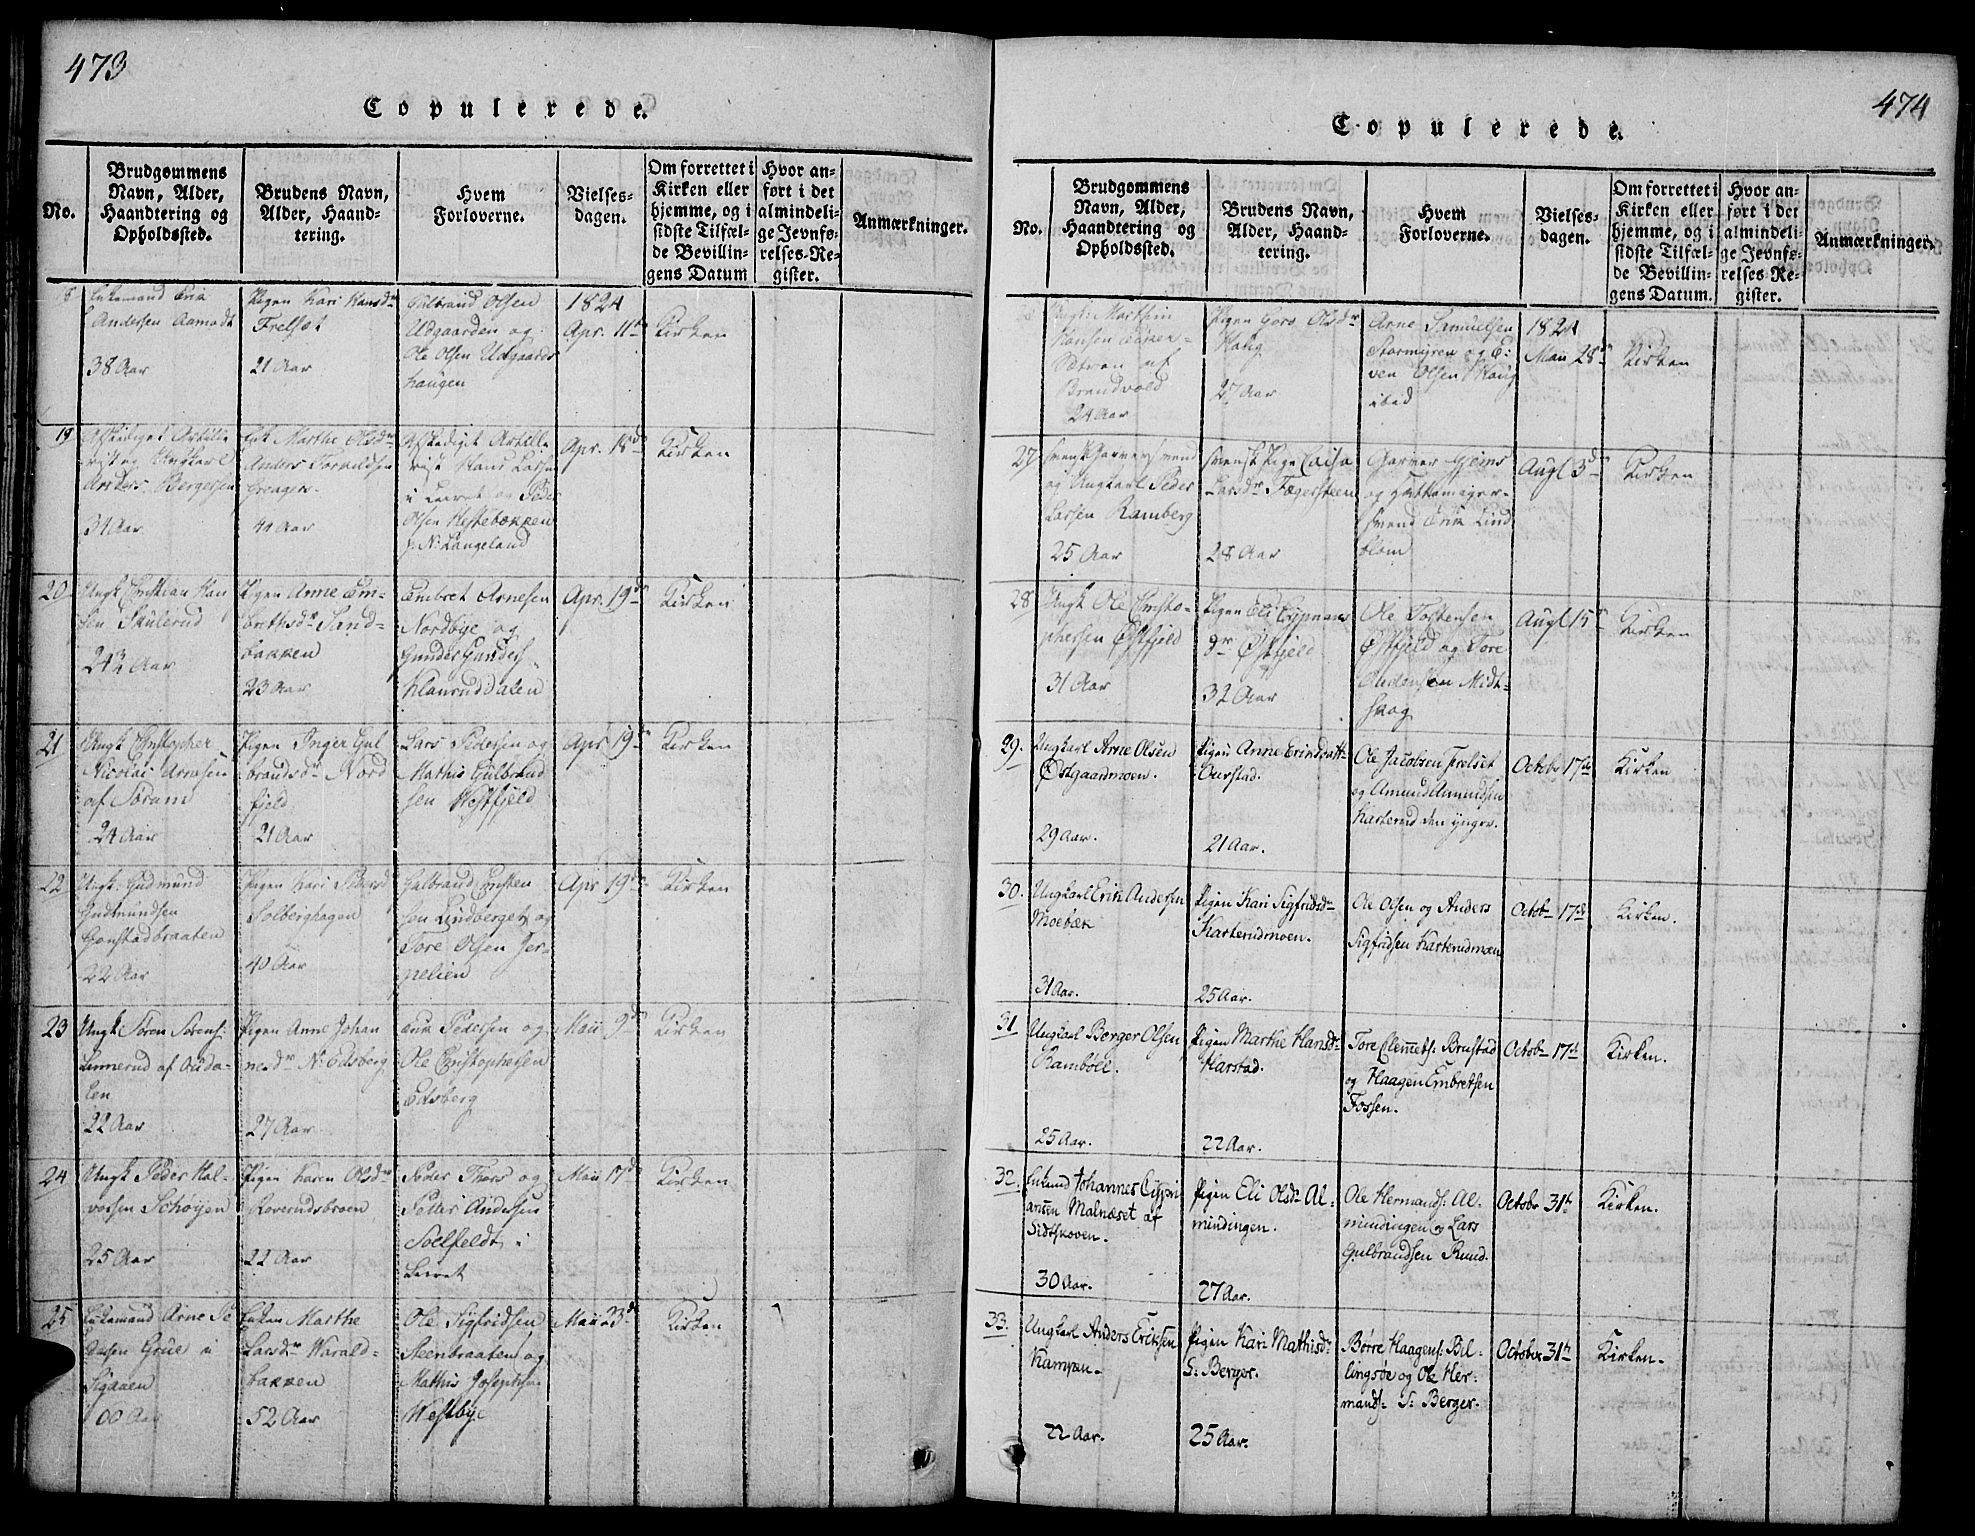 473
Copulerede.
No.
Brudgommens
Navn, Alder,
Haandtering og
Opholdssted.
Brudens Navn,
Alder, Haand-
tering.
Hvem
Forloverne.
Vielses-
dagen.
Om forrettet i
Kirken eller
hjemme, og i
sidste Tilfæl-
de Bevillin-
gens Datum
Hvor an-
ført i det
almindeli-
ge Jevnfø-
relses-Re-
gister.
Anmærkninger.
Enkemand Erik
Andersen Aamodt
38 Aar
Pigen Kari Hansdr
Frelset
21 Aar
Gulbrand Olsen
Udgaarden og
Ole Olsen Udgaards
haugen
1824
Apr. 11te
Kirken
19
Afskediget Artille
rist og Ungkarl
Anders Bergersen
31 Aar
Enk Marthe Olsdr
Anders Torkildsen
Aar
Afskediget Artille
rist Hans Larsen
i Leiret og Peder
Olsen Hestebækken
p. N: Langeland
Apr. 18de
Kirken
20
Ungk Christian Han
sen Skulerud
Aar
Pigen Anne Em-
brethsdr Sand-
bakken
23 Aar
Embret Arnesen
Nordbye og
Gunder Gunders.
Klanruddalen
Apr. 19de
Kirken
21
Ungk Christopher
Nicolai Arnesen
af Sørum
24 Aar
Pigen Inger Gul
brandsdr Nord
fjeld
21 Aar
Lars Pedersen og
Mathis Gulbrand
sen Westfjeld
Apr 19de
Kirken
22
Ungk. Gudmund
Gudmundsen
Gonstadbraaten
22 Aar
Pigen Kari Pedersd
Solberghagen
40 Aar
Gulbrand Christen
sen Lindberget og
Tore Olsen Jer-
pelien
Apr 19de
Kirken
23
Ungk Søren Sørens:
Linnerud af Oudа-
len
22 Aar
Pigen Anne Johan
nesdr N: Edsberg
27 Aar
Erik Pedersen og
Ole Christophersen
Edsberg
Maii 9de
Kirken
24
Ungk Peder Hal-
vorsen Schøyen
25 Aar
Pigen Karen Olsdr
Roverudsbroen
22 Aar
Peder Thors og
Petter Andersen
Soelfeldt i
Leiret
Maii 17de
Kirken
25
Enkemand Arne Pe
dersen Grue i
Sigaaen
Enken Marthe
Larsdr Warald-
bakken
52 Aar
Ole Sigfridsen
Steenbraaten og
Mathis Josephsen
Westbye
Maii 23de
Kirken
474
Copulerede.
No.
Brudgommens
Navn, Alder,
Haandtering og
Opholdssted.
Brudens Navn,
Alder, Haand-
tering.
Hvem
Forloverne.
Vielses-
dagen.
Om forrettet i
Kirken eller
hjemme, og i
sidste Tilfæl-
de Bevillin-
gens Datum.
Hvor an-
ført i det
almindeli-
ge Jevnfø-
relses Re-
gister.
Anmærkninger.
Ungk: Marthin
Hansen
af
Brandvold
24 Aar
Pigen Goro Olsdr
Haug
27 Aar
Arne Samuelsen
Stormyren og E:
ven Olsen Haug
ibid
1824
Maii 28de
Kirken
27
svensk Garversvend
og Ungkarl Peder
Larsen Ramberg
25 Aar
svensk Pige Caisa
Larsdr Fægersteen
28 Aar
Garver Heins
og Hattemager-
svend Erik Lind
blom
Augl 3de
Kirken
28
Ungk Ole Christo-
phersen Østfjeld
31 Aar
Pigen Eli Cyprians
dr Østfjeld
32 Aar
Ole Tostensen
Østfjeld og Tore
Oudensen Midt-
skog
Augl 15de
Kirken
29.
Ungkarl Arne Olsen
Østgaardmoen.
29 Aar.
Pigen Anne Erindsatt.
Ourstad.
21 Aar.
Ole Jacobsen Frelset
og Amund Amundsen
Harterud den yngre.
Octobr 17de
Kirken
30.
Ungkarl Erik Andersen
Moebæk
31 Aar.
Pigen Kari Sigfridsdr
Harterudmoen.
25 Aar.
Ole Olsen og Anders
Sigfridsen Harterudmoen
Octobr 17de
Kirken.
31
Ungkarl Berger Olsen
Rambøll.
25 Aar.
Pigen Marthe Hansdr
Harstad.
22 Aar.
Tore Clemets: Brustad
og Haagen Embretsen
Fossen.
Octobr 17de
Kirken.
32.
Enkemd Johannes Cypri
ansen Malnæset af
Sidtskoven.
30 Aar.
Pigen Eli Olsdr Al-
mindingen.
27 Aar.
Ole Hermands: Al-
mindingen og Lars
Gulbrandsen Ruud.
Octobr 31te
Kirken.
33.
Ungkarl Anders Eriksen
Kampen.
22 Aar.
Pigen Kari Mathisdr
S: Berger.
25 Aar.
Børre Haagens: Bil-
lingsøe og Ole Her-
mands: S: Berger.
October 31te
Kirken.